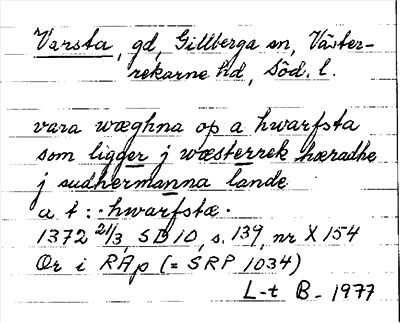 Varsta, gd, Gillberga sn, Väster-
rekarne hd, Söd. l.
vara wæghna op a hwarfsta
som ligger j wæsterrek hæradhe
j sudhermanna lande
a t : · hwarfstæ ·
1372 21/3, SD 10, s. 139, nr X 154
Or i RAp (= SRP 1034)
L-t B - 1977